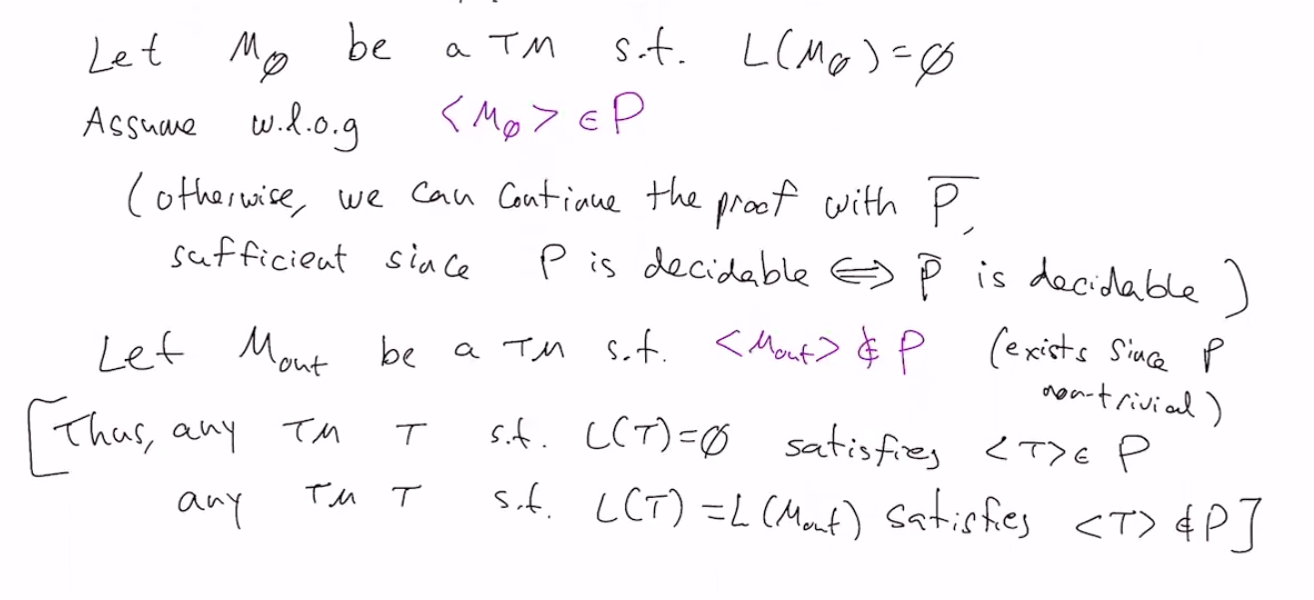 Let M∅ be a TM s.t. L(M∅)=∅
Assume w.l.o.g <M∅> ∈ P
(otherwise, we can continue the proof with P̅,
sufficient since P is decidable ⟺ P̅ is decidable)
Let Mout be a TM s.t. <Mout> ∉ P (exists since P
non-trivial)
[Thus, any TM T s.t. L(T)=∅ satisfies <T> ∈ P
any TM T s.t. L(T) = L(Mout) satisfies <T> ∉ P]